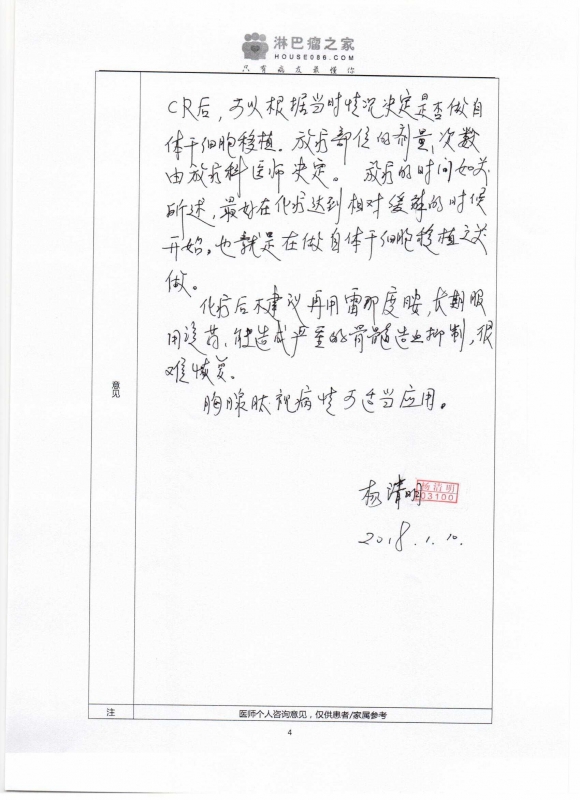 淋巴瘤之家
HOUSE086.COM
只有病友最懂你
CR后，可以根据当时情况决定是否做自
体干细胞移植。放疗部位的剂量、次数
由放疗科医师决定。放疗的时间如前
所述，最好在化疗达到相对缓解的时候
开始。也就是在做自体干细胞移植之前
做。
化疗后不建议再用雷那度胺，长期服
用该药，能造成严重的骨髓造血抑制，很
难恢复。
胸腺肽视病情可适当应用。
意见
杨清明
杨清明
03100
2018.1.10.
注
医师个人咨询意见，仅供患者/家属参考
4